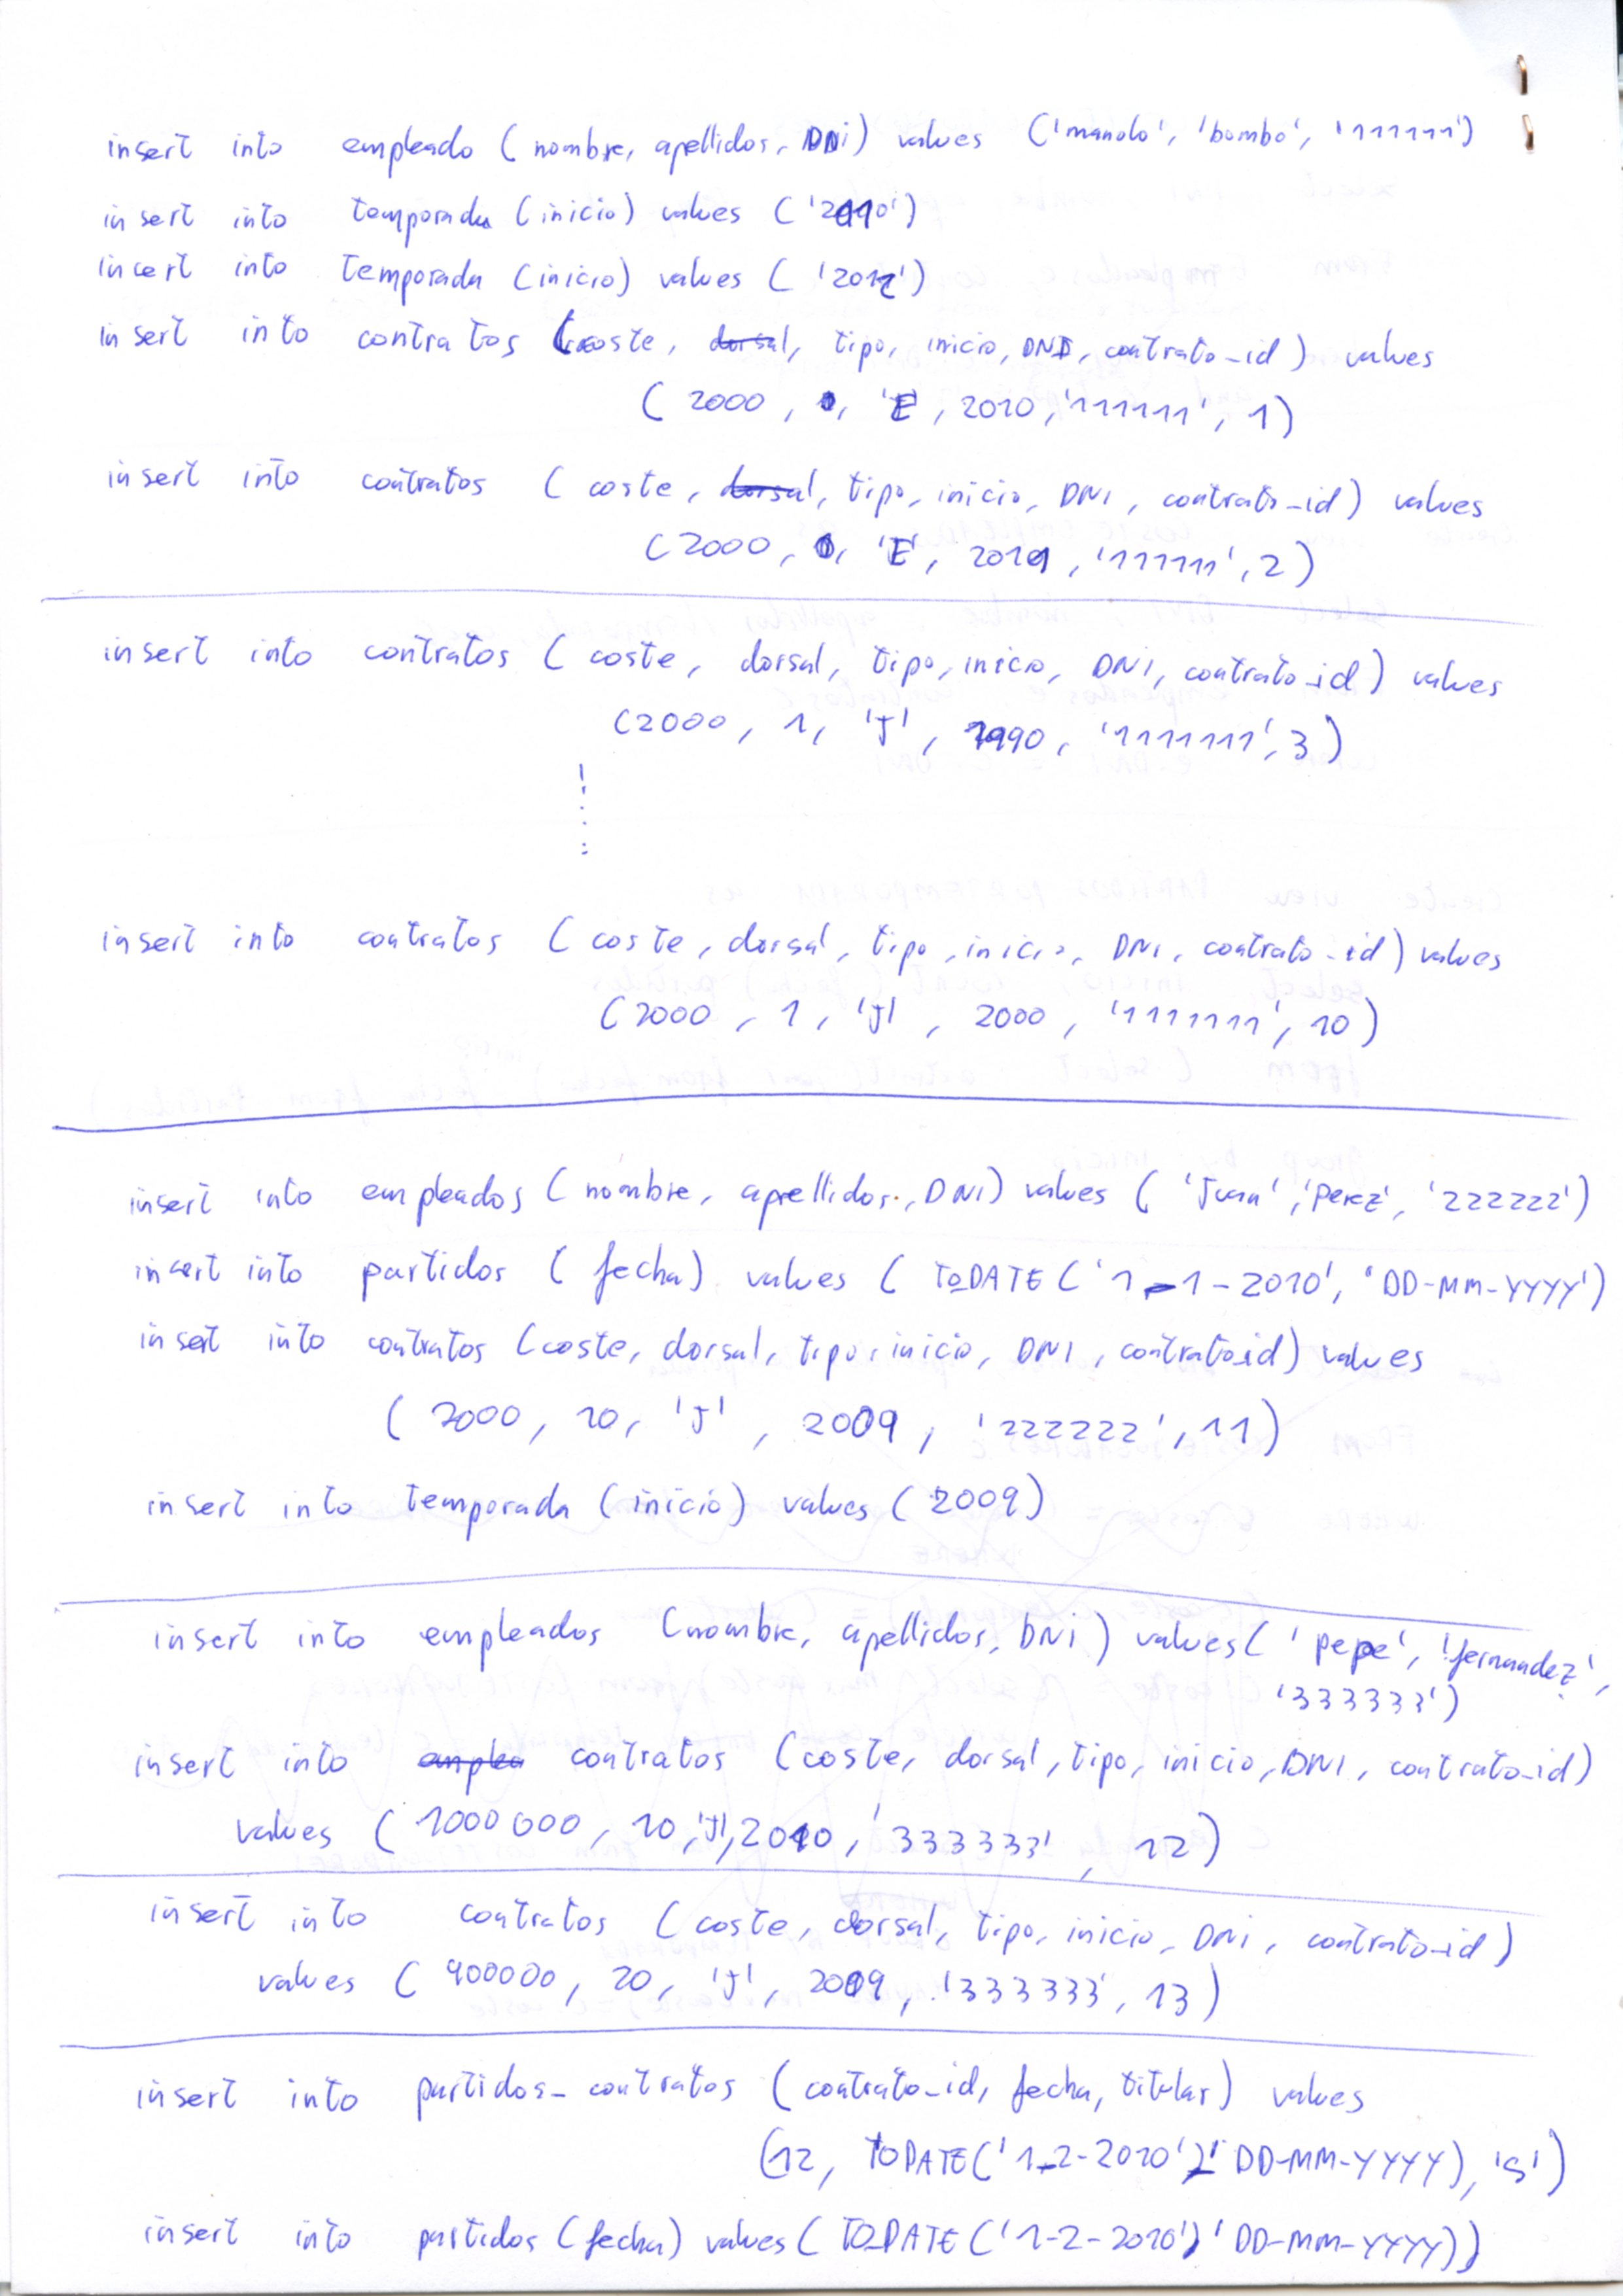 insert into empleado (nombre, apellidos, DNi) values ('manolo', 'bombo', '111111')
insert into temporada (inicio) values ('2010')
insert into temporada (inicio) values ('2011')
insert into contratos (coste, dorsal, tipo, inicio, DNI, contrato_id) values
(2000, 'E', 2010, '111111', 1)
insert into contratos (coste, dorsal, tipo, inicio, DNI, contrato_id) values
(2000, 'E', 2011, '111111', 2)
insert into contratos (coste, dorsal, tipo, inicio, DNI, contrato_id) values
(2000, 1, 'J', 1990, '1111111', 3)
insert into contratos (coste, dorsal, tipo, inicio, DNI, contrato_id) values
(2000, 1, 'J', 2000, '1111111', 10)
insert into empleados (nombre, apellidos, DNI) values ('Juan', 'Perez', '222222')
insert into partidos (fecha) values (TO_DATE('1-1-2010', 'DD-MM-YYYY')
insert into contratos (coste, dorsal, tipo, inicio, DNI, contrato_id) values
(2000, 20, 'J', 2009, '222222', 11)
insert into temporada (inicio) values (2009)
insert into empleados (nombre, apellidos, DNi) values ('pepe', 'fernandez',
'333333')
insert into emplea contratos (coste, dorsal, tipo, inicio, DNI, contrato_id)
values (1000000, 10, 'J', 2010, '333333', 12)
insert into contratos (coste, dorsal, tipo, inicio, DNi, contrato_id)
values (900000, 20, 'J', 2009, '333333', 13)
insert into partidos_contratos (contrato_id, fecha, titular) values
(12, TO_DATE('1-2-2010', 'DD-MM-YYYY), 'S')
insert into partidos (fecha) values (TO_DATE('1-2-2010', 'DD-MM-YYYY))